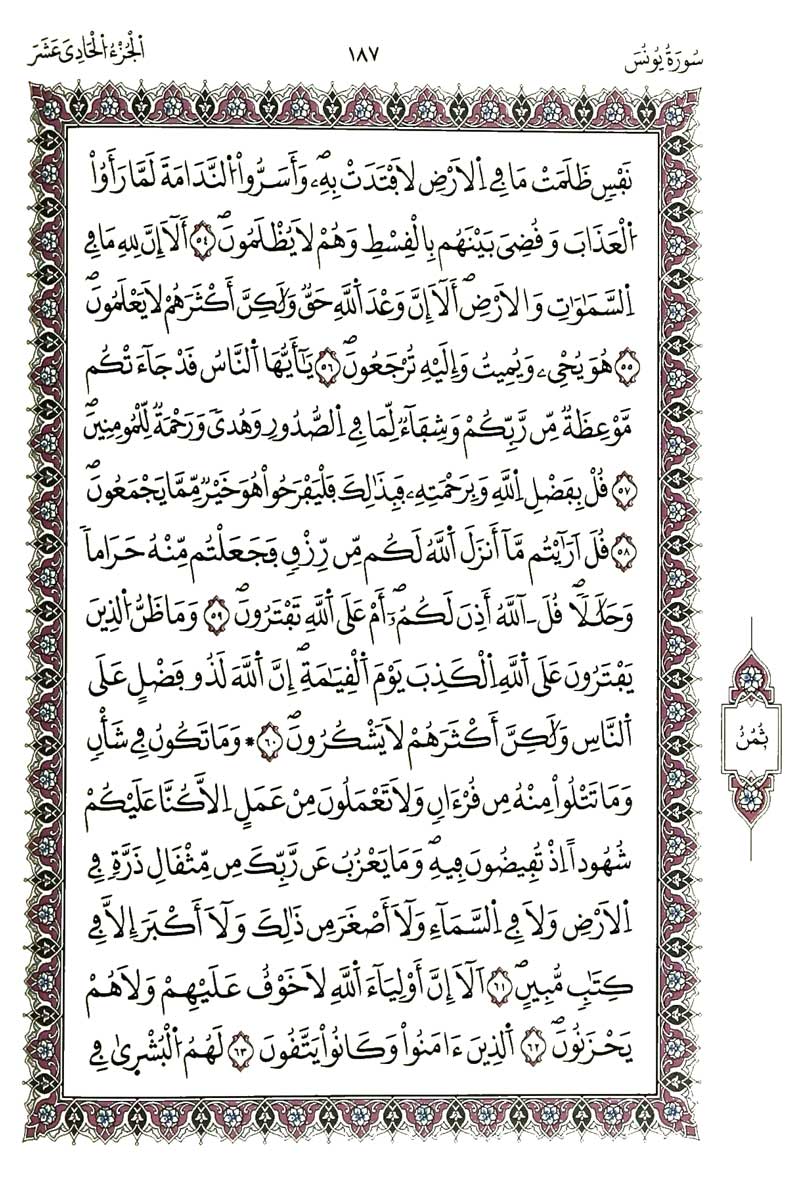 سُورَةُ يُونُسَ
١٨٧
الْجُزْءُ الْحَادِيَ عَشَرَ
نَفْسٖ ظَلَمَتْ مَا فِے اِ۬لَارْضِ لَافْتَدَتْ بِهِۦۖ وَأَسَرُّواْ اُ۬لنَّدَامَةَ لَمَّا رَأَوُاْ
اُ۬لْعَذَابَ وَقُضِيَ بَيْنَهُم بِالْقِسْطِ وَهُمْ لَا يُظْلَمُونَۖ ٥٤ أَلَآ إِنَّ لِلهِ مَا فِے
اِ۬لسَّمَٰوَٰتِ وَالَارْضِۖ أَلَآ إِنَّ وَعْدَ اَ۬للَّهِ حَقّٞ وَلَٰكِنَّ أَكْثَرَهُمْ لَا يَعْلَمُونَۖ
٥٥ هُوَ يُحْيِۦ وَيُمِيتُ وَإِلَيْهِ تُرْجَعُونَۖ ٥٦ يَٰٓأَيُّهَا اَ۬لنَّاسُ قَدْ جَآءَتْكُم
مَّوْعِظَةٞ مِّن رَّبِّكُمْ وَشِفَآءٞ لِّمَا فِے اِ۬لصُّدُورِ وَهُديٗ وَرَحْمَةٞ لِّلْمُومِنِينَۖ
٥٧ قُلْ بِفَضْلِ اِ۬للَّهِ وَبِرَحْمَتِهِۦ فَبِذَٰلِكَ فَلْيَفْرَحُواْ هُوَ خَيْرٞ مِّمَّا يَجْمَعُونَۖ
٥٨ قُلَ اَرَٰٓيْتُم مَّآ أَنزَلَ اَ۬للَّهُ لَكُم مِّن رِّزْقٖ فَجَعَلْتُم مِّنْهُ حَرَاماٗ
وَحَلَٰلاٗۖ قُلَ ـ آللَّهُ أَذِنَ لَكُمُۥٓۖ أَمْ عَلَى اَ۬للَّهِ تَفْتَرُونَۖ ٥٩ وَمَا ظَنُّ اُ۬لذِينَ
يَفْتَرُونَ عَلَى اَ۬للَّهِ اِ۬لْكَذِبَ يَوْمَ اَ۬لْقِيَٰمَةِۖ إِنَّ اَ۬للَّهَ لَذُو فَضْلٍ عَلَى
اَ۬لنَّاسِ وَلَٰكِنَّ أَكْثَرَهُمْ لَا يَشْكُرُونَۖ ٦٠ * وَمَا تَكُونُ فِے شَأْنٖ
وَمَا تَتْلُواْ مِنْهُ مِن قُرْءَانٖ وَلَا تَعْمَلُونَ مِنْ عَمَلٍ اِلَّا كُنَّا عَلَيْكُمْ
شُهُوداً اِذْ تُفِيضُونَ فِيهِۖ وَمَا يَعْزُبُ عَن رَّبِّكَ مِن مِّثْقَالِ ذَرَّةٖ فِے
اِ۬لَارْضِ وَلَا فِے اِ۬لسَّمَآءِ وَلَآ أَصْغَرَ مِن ذَٰلِكَ وَلَآ أَكْبَرَ إِلَّا فِے
كِتَٰبٖ مُّبِينٍۖ ٦١ اَلَآ إِنَّ أَوْلِيَآءَ اَ۬للَّهِ لَا خَوْفٌ عَلَيْهِمْ وَلَا هُمْ
يَحْزَنُونَۖ ٦٢ اَ۬لذِينَ ءَامَنُواْ وَكَانُواْ يَتَّقُونَ ٦٣ لَهُمُ اُ۬لْبُشْر۪يٰ فِے
ثُمُنُ